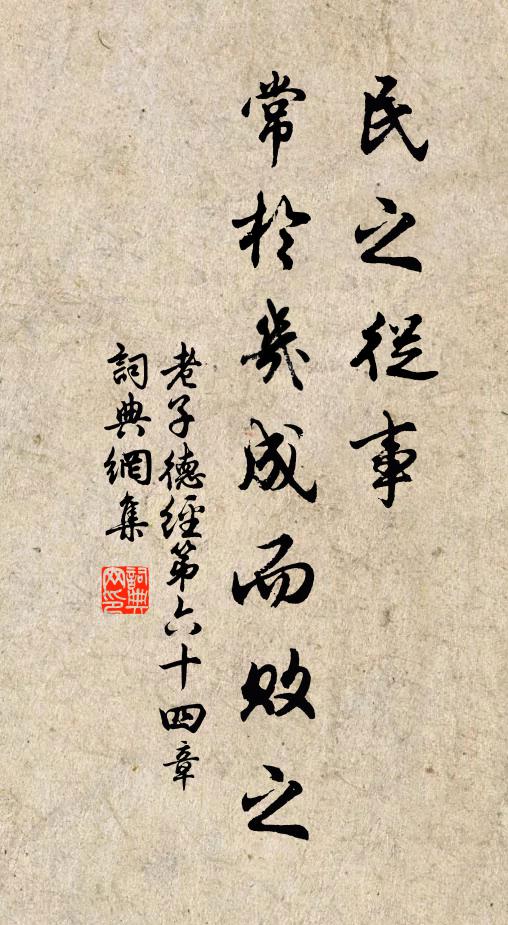 民之從事
常於幾成而敗之
老子德經第六十四章
詞典網集
詞典
网印